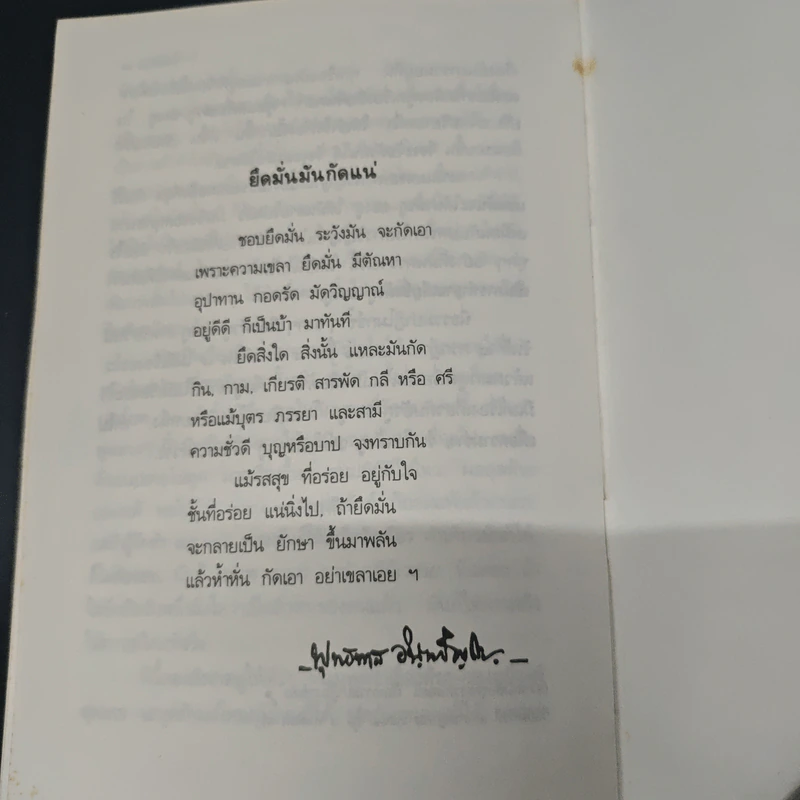 ยึดมั่นมันกัดแน่
ชอบยึดมั่น ระวังมัน จะกัดเอา
เพราะความเขลา ยึดมั่น มีตัณหา
อุปาทาน กอดรัด มัดวิญญาณ์
อยู่ดีดี ก็เป็นบ้า มาทันที
ยึดสิ่งใด สิ่งนั้น แหละมันกัด
กิน, กาม, เกียรติ สารพัด กลี หรือ ศรี
หรือแม้บุตร ภรรยา และสามี
ความชั่วดี บุญหรือบาป จงทราบกัน
แม้รสสุข ที่อร่อย อยู่กับใจ
ชั้นที่อร่อย แน่นิ่งไป, ถ้ายึดมั่น
จะกลายเป็น ยักษา ขึ้นมาพลัน
แล้วห้ำหั่น กัดเอา อย่าเขลาเอย ฯ
พุทธทาส อินฺทปญฺโญ